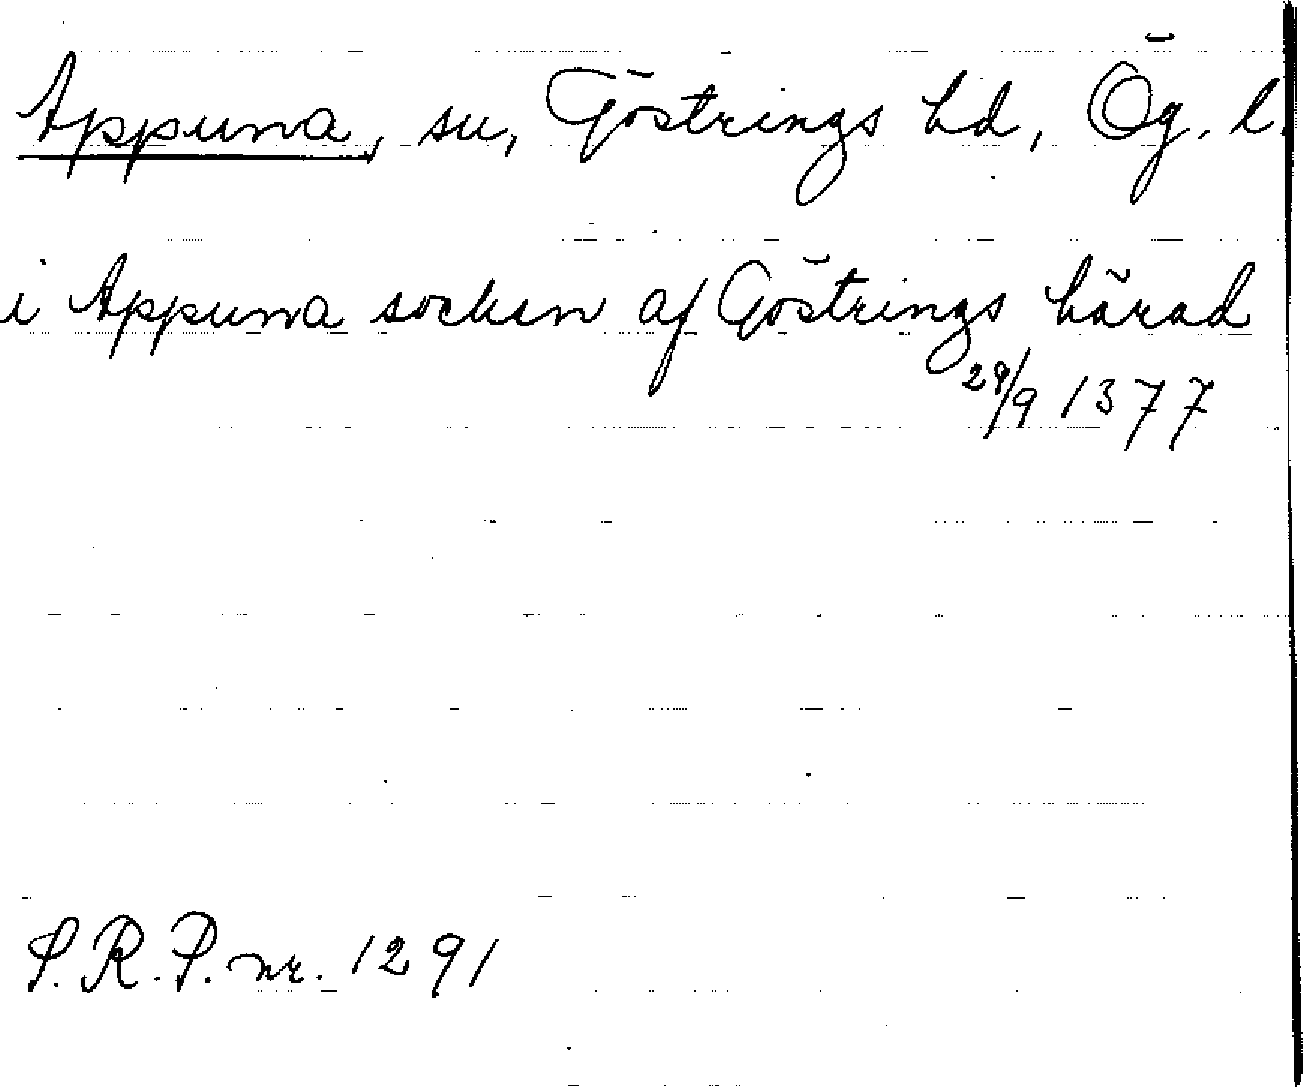 Appuna, sn, Göstrings hd, Ög. l.
i Appuna socken af Göstrings härad
28/9 1377
S.R.P. nr. 1291